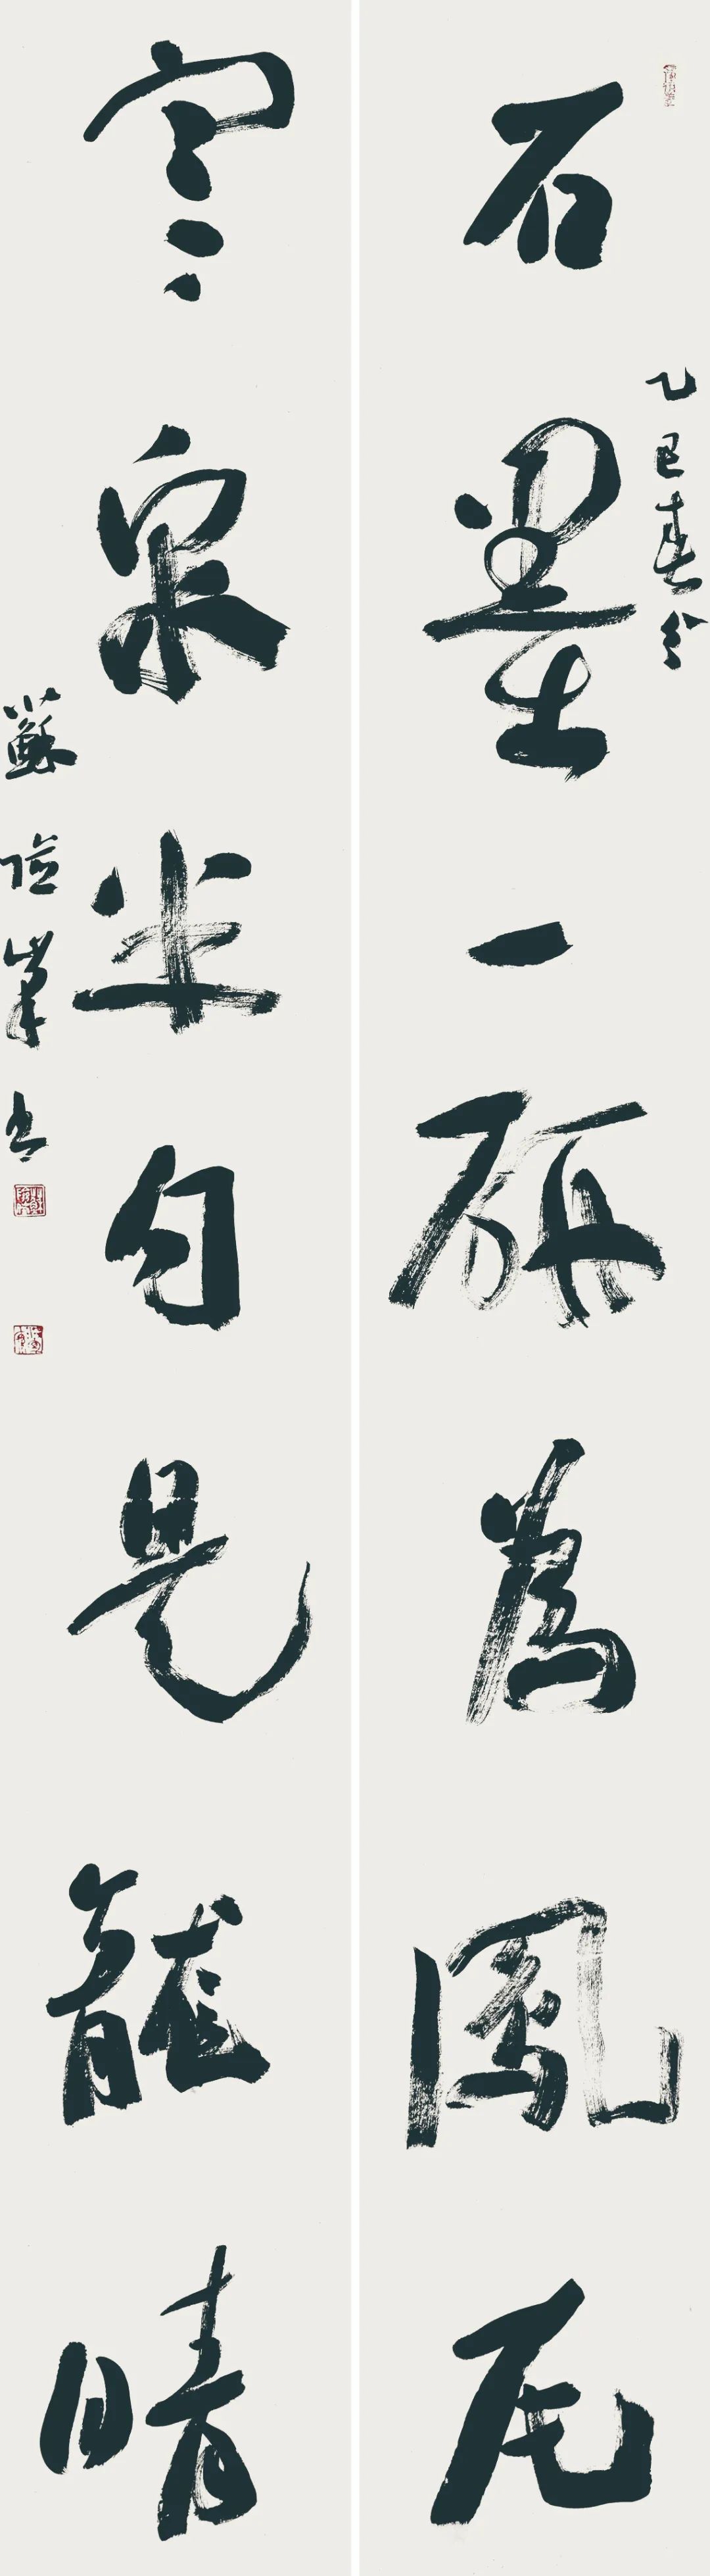 乙巳春分
石墨一研為鳳尾
寒泉半勺是龍睛
蘇险峯书